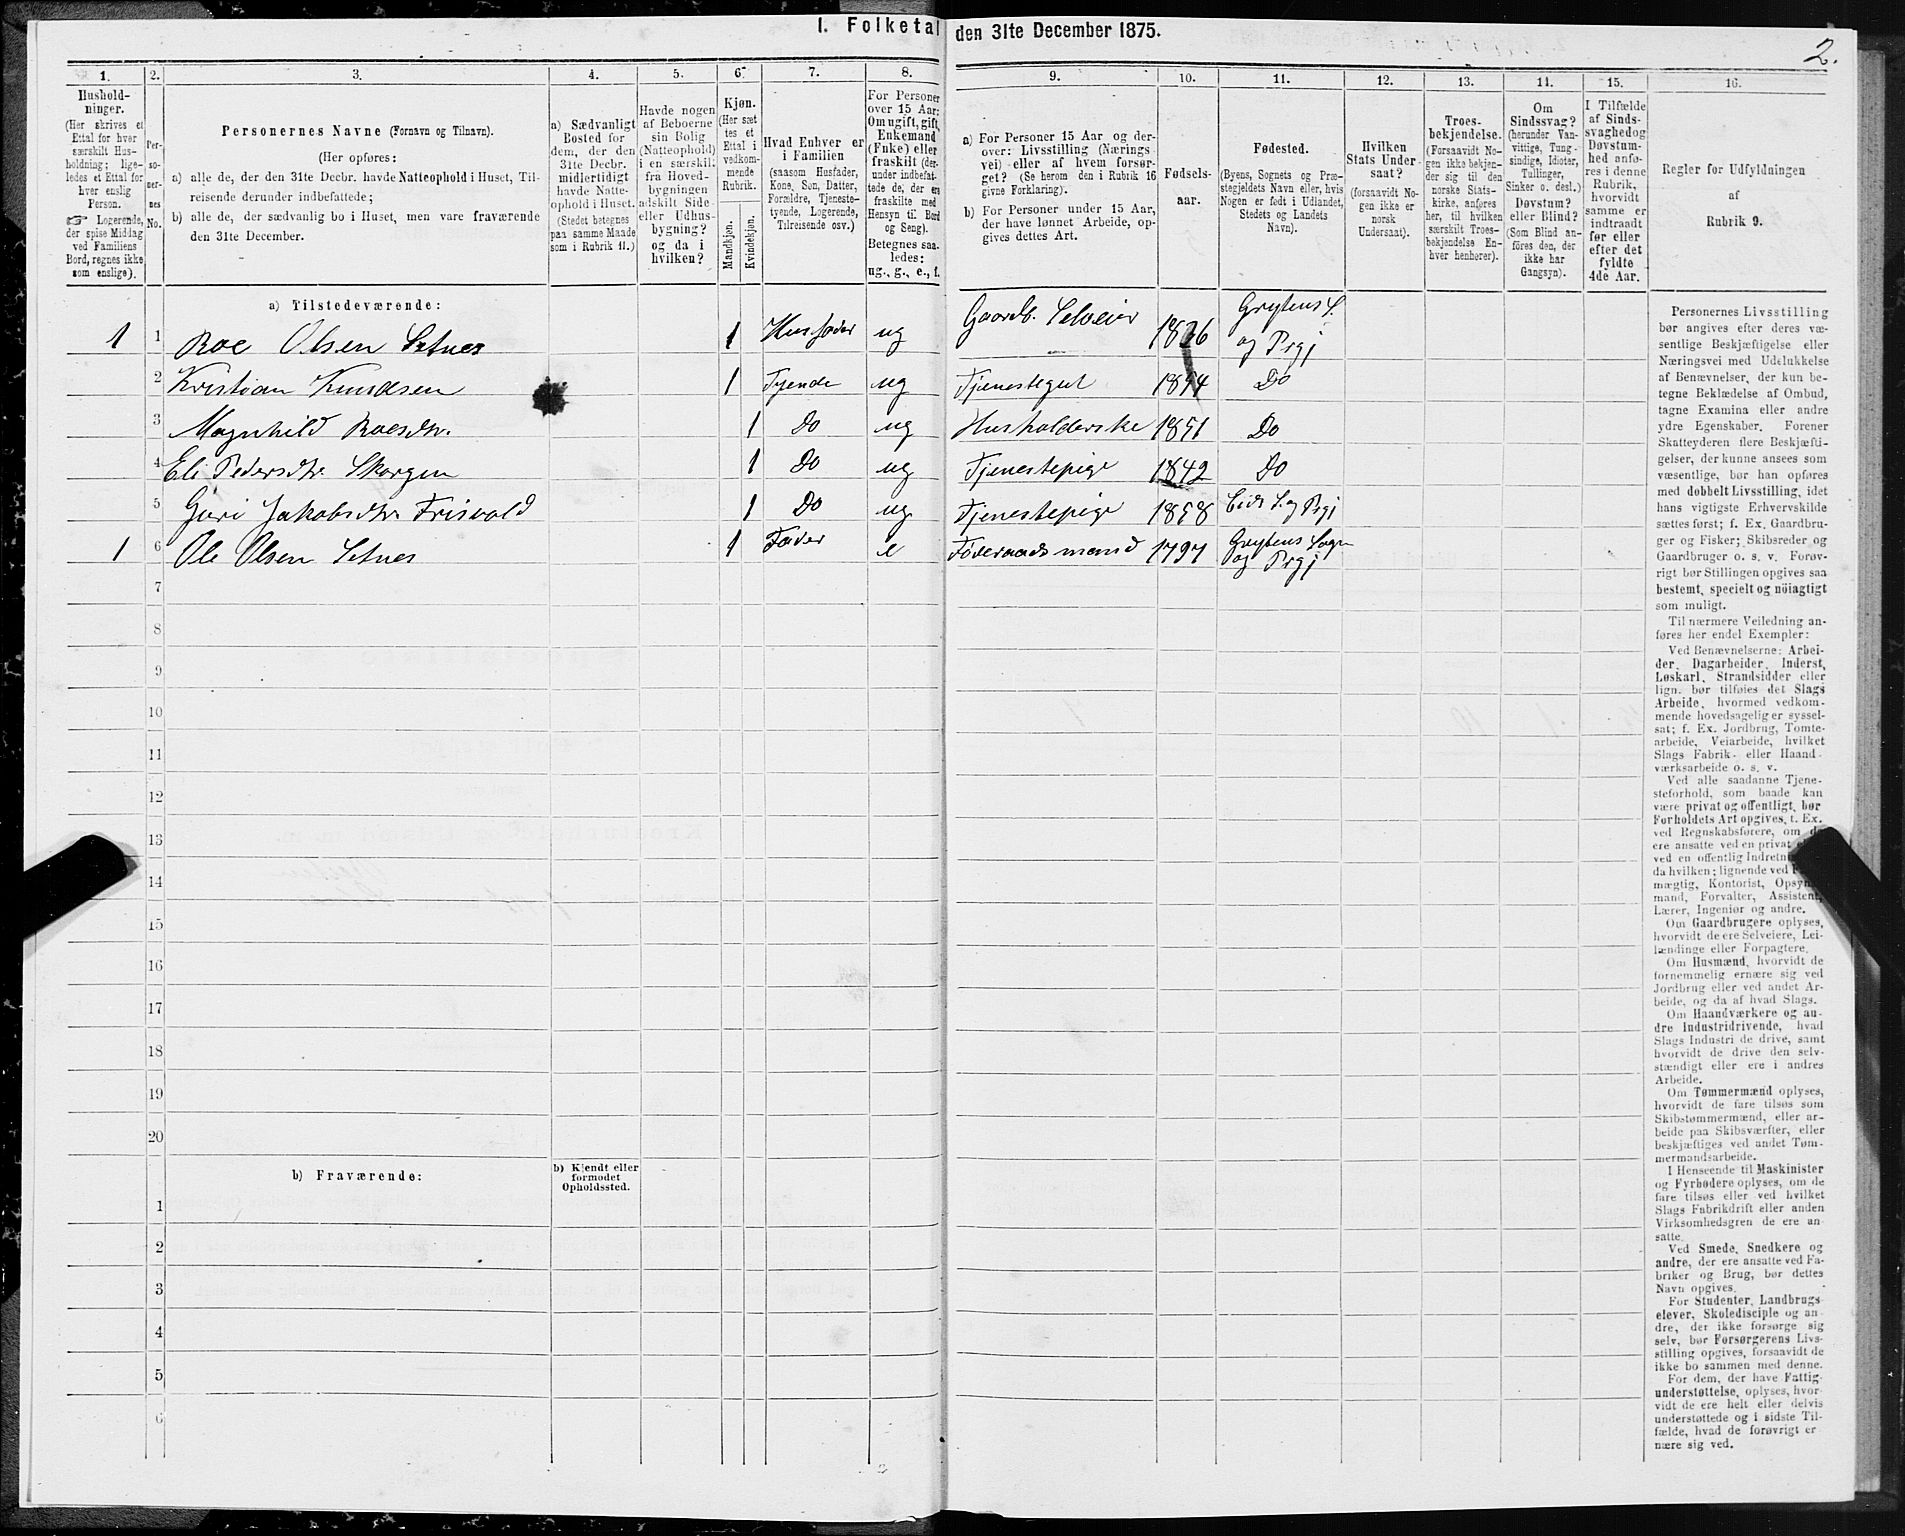 I. Folketal den 31te December 1875.
2.
1.
2.
3.
4.
5.
6.
7.
8.
9.
10.
11.
12.
13.
14.
15.
16.
Hushold-
ninger.
(Her skrives et
Ettal for hver
særskilt Hus-
holdning; lige-
ledes et Ettal for
hver enslig
Person.
☞ Logerende,
der spise Middag
ved Familiens
Bord, regnes ikke
som enslige).
Per-
so-
ner-
nes
No.
Personernes Navne (Fornavn og Tilnavn).
(Her opføres:
a) alle de, der den 31te Decbr. havde Natteophold i Huset, Til-
reisende derunder indbefattede;
b) alle de, der sædvanlig bo i Huset, men vare fraværende
den 31te December.
a) Sædvanligt
Bosted for
dem, der den
31te Decbr.
midlertidigt
havde Natte-
ophold i Huset.
(Stedet betegnes
paa samme Maade
som i Rubrik 11.)
Havde nogen
af Beboerne
sin Bolig
(Natteophold)
i en særskilt
fra Hoved-
bygningen
adskilt Side-
eller Udhus-
bygning?
og da i
hvilken?
Kjøn.
(Her sæt-
tes et
Ettal i
vedkom-
mende
Rubrik.
Mandkjøn.
Kvindekjøn.
Hvad Enhver er
i Familien
(saasom Husfader,
Kone, Søn, Datter,
Forældre, Tjeneste-
tyende, Logerende,
Tilreisende osv.)
For Personer
over 15 Aar:
Om ugift, gift,
Enkemand
(Enke) eller
fraskilt (der-
under indbefat-
tede de, der ere
fraskilte med
Hensyn til Bord
og Seng).
Betegnes saa-
ledes:
ug., g., e., f.
a) For Personer 15 Aar og der-
over: Livsstilling (Nærings-
vei) eller af hvem forsør-
get? (Se herom den i Rubrik 16
givne Forklaring).
b) For Personer under 15 Aar,
der have lønnet Arbeide, op-
gives dettes Art.
Fødsels-
aar.
Fødested.
(Byens, Sognets og Præ-
stegjeldets Navn eller, hvis
Nogen er født i Udlandet,
Stedets og Landets
Navn).
Hvilken
Stats Under-
saat?
(forsaavidt No-
gen ikke er
norsk
Undersaat).
Troes-
bekjendelse.
(Forsaavidt No-
gen ikke bekjen-
der sig til den
norske Stats-
kirke, anføres
her, til hvilken
særskilt Troes-
bekjendelse En-
hver henhører).
Om
Sindssvag?
(herunder Van-
vittige, Tung-
sindige, Idioter,
Tullinger,
Sinker o. desl.)
Døvstum?
eller Blind?
(Som Blind an-
føres den, der
ikke har
Gangsyn).
I Tilfælde
af Sinds-
svaghed og
Døvstum-
hed anfø-
res i denne
Rubrik,
hvorvidt
samme er
indtraadt
før eller
efter det
fyldte
4de Aar.
Regler for Udfyldningen
af
Rubrik 9.
a) Tilstedeværende:
1 1 Roe Olsen Setnes 1 Husfader ug Gaardb. Selveier 1836 Grytens S. og Prgj
2 Kristian Knudsen 1 Tyende ug Tjenestegut 1854 Do
3 Magnhild Roesdtr. 1 Do ug Husholderske 1851 Do
4 Eli Pedersdtr Skorgen 1 Do ug Tjenestepige 1842 Do
5 Guri Jakobsdtr. Frisvold 1 Do ug Tjenestepige 1858 Eids S. og Prgj
1 6 Ole Olsen Setnes 1 Fader e Føderaadsmand 1797 Grytens Sogn og Prgj
7
8
9
10
11
12
13
14
15
16
17
18
19
20
b) Fraværende:
b) Kjendt eller
formodet
Opholdssted.
1
2
3
4
5
6
Personernes Livsstilling
bør angives efter deres væ-
sentlige Beskjæftigelse eller
Næringsvei med Udelukkelse
af Benævnelser, der kun be-
tegne Beklædelse af Ombud,
tagne Examina eller andre
ydre Egenskaber. Forener
Skatteyderen flere Beskjæfti-
gelser, der kunne ansees som
væsentlige, bør han opføres
med dobbelt Livsstilling, idet
hans vigtigste Erhvervskilde
sættes først; f. Ex. Gaardbru-
ger og Fisker; Skibsreder og
Gaardbruger o. s. v. Forøv-
rigt bør Stillingen opgives saa
bestemt, specielt og nöiagtigt
som muligt.
Til nærmere Veiledning an-
føres her endel Exempler:
Ved Benævnelserne: Arbei-
der, Dagarbeider, Inderst,
Løskarl, Strandsidder eller
lign. bør tilføies det Slags
Arbeide, hvormed vedkom-
mende hovedsagelig er syssel-
sat; f. Ex. Jordbrug, Tomte-
arbeide, Veiarbeide, hvilket
Slags Fabrik- eller Haand-
værksarbeide o. s. v.
Ved alle saadanne Tjene-
steforhold, som baade kan
være privat og offentligt, bør
Forholdets Art opgives, t. Ex.
ved Regnskabsførere, om de
ere ansatte ved en privat
ved en offentlig
da hvilken; lignende ved
mægtig, Kontorist,
mand, Forvalter, Assistent,
Lærer, Ingeniør og andre.
Om Gaardbrugere oplyses,
hvorvidt de ere Selveiere, Lei-
lændinge eller Forpagtere.
Om Husmænd, hvorvidt de
fornemmelig ernære sig ved
Jordbrug eller ved andet Ar-
beide, og da af hvad Slags.
Om Haandværkere og an-
dre Industridrivende, hvad
Slags Industri de drive, samt
hvorvidt de drive den selv-
stændigt eller ere i andres
Arbeide.
Om Tømmermænd oplyses,
hvorvidt de fare tilsøs som
Skibstømmermænd, eller ar-
beide paa Skibsværfter, eller
beskjæftiges ved andet Tøm-
mermandsarbeide.
I Henseende til Maskinister
og Fyrbødere oplyses, om de
fare tilsøs eller ved hvilket
Slags Fabrikdrift eller anden
Virksomhedsgren de ere an-
satte.
Ved Smede, Snedkere og
andre, der ere ansatte ved Fa-
briker og Brug, bør dettes
Navn opgives.
For Studenter, Landbrugs-
elever, Skoledisciple og an-
dre, der ikke forsørge sig
selv, bør Forsørgerens Livs-
stilling opgives, forsaavidt de
ikke bo sammen med denne.
For dem, der have Fattig-
understøttelse, oplyses, hvor-
vidt de ere helt eller delvis
understøttede og i sidste Til-
fælde, hvad de forøvrigt er-
nære sig ved.